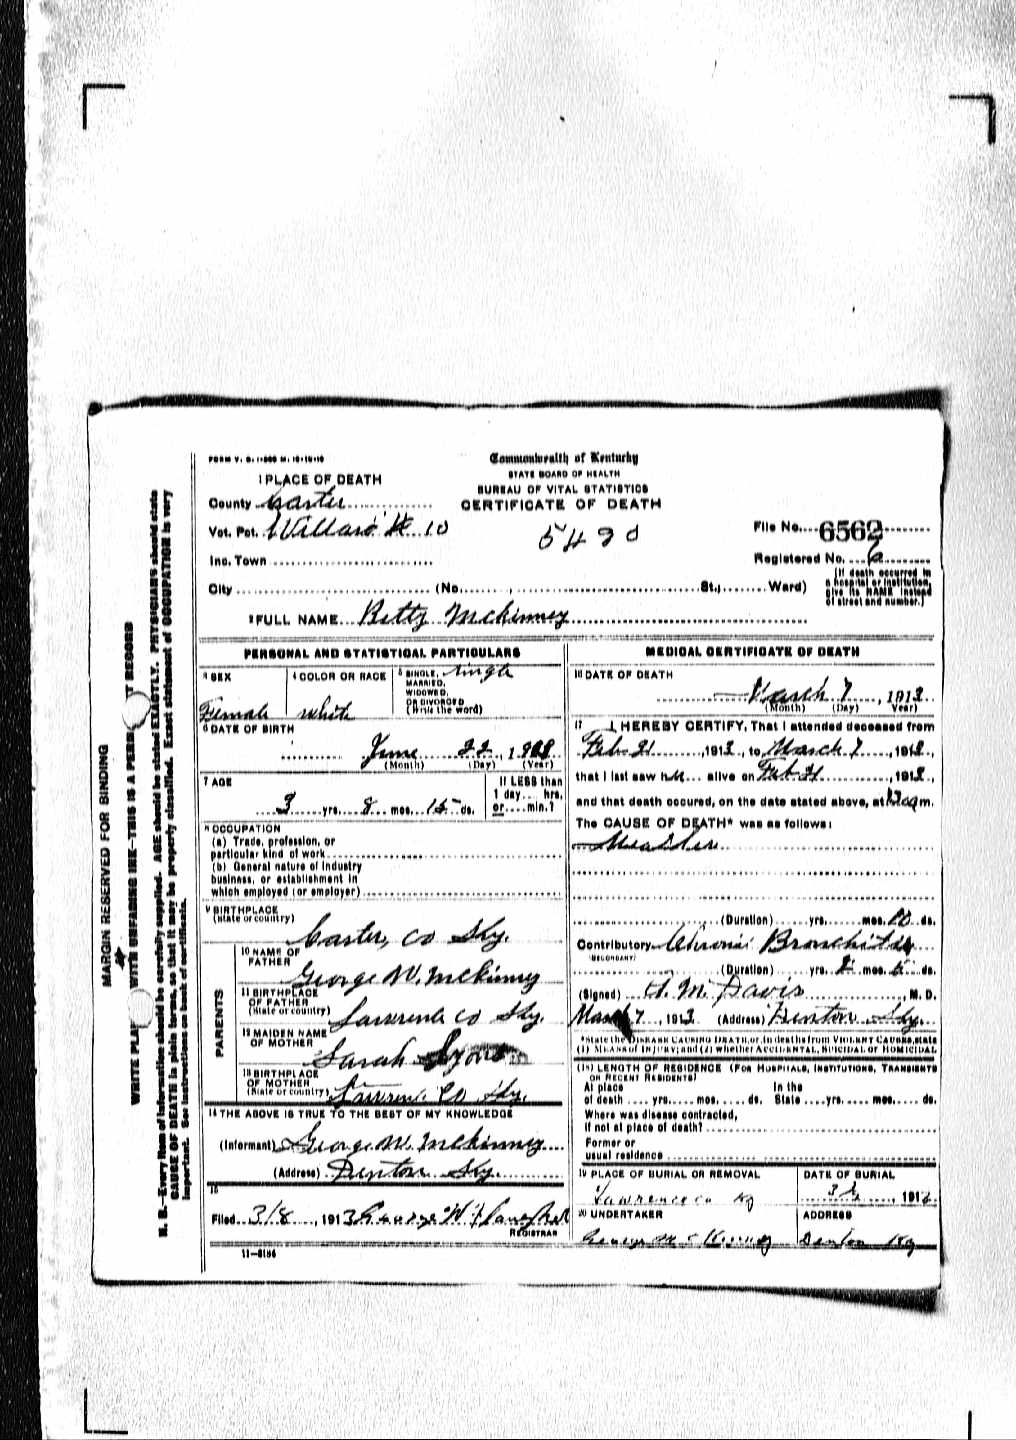 FORM V. S. 1-
Commonwealth of Kentucky
STATE BOARD OF HEALTH
BUREAU OF VITAL STATISTICS
CERTIFICATE OF DEATH
1 PLACE OF DEATH
County Carter
Vot. Pct. Willard # 10
Inc. Town
City (No. St.; Ward)
5490
File No. 6562
Registered No. 6
(If death occurred in
a hospital or institution,
give its NAME instead
of street and number.)
2 FULL NAME Betty McKinney
PERSONAL AND STATISTICAL PARTICULARS
3 SEX
Female
4 COLOR OR RACE
white
5 SINGLE, Single
MARRIED,
WIDOWED,
OR DIVORCED
(Write the word)
6 DATE OF BIRTH
June 22, 1
(Month) (Day) (Year)
7 AGE
3 yrs. 8 mos. 15 ds.
If LESS than
1 day.... hrs.
or.....min.?
8 OCCUPATION
(a) Trade, profession, or
particular kind of work
(b) General nature of industry
business, or establishment in
which employed (or employer)
9 BIRTHPLACE
(State or country)
Carter, Co Ky.
PARENTS
10 NAME OF
FATHER
George W. McKinney
11 BIRTHPLACE
OF FATHER
(State or country)
Lawrence Co Ky.
12 MAIDEN NAME
OF MOTHER
Sarah Lyons
13 BIRTHPLACE
OF MOTHER
(State or country)
Lawrence Co Ky.
14 THE ABOVE IS TRUE TO THE BEST OF MY KNOWLEDGE
(Informant) George W. McKinney
(Address) Denton Ky.
15
Filed 3/8, 1913 George W
REGISTRAR
11-3184
MEDICAL CERTIFICATE OF DEATH
16 DATE OF DEATH
March 7, 1913
(Month) (Day) Year)
17 I HEREBY CERTIFY, That I attended deceased from
Feb 21, 1913, to March 7, 1913,
that I last saw h alive on Feb 21, 1913,
and that death occured, on the date stated above, at m.
The CAUSE OF DEATH* was as follows:
Measles
(Duration) yrs. mos. 10 ds.
Contributory Chronic Bronchitis
(SECONDARY)
(Duration) yrs. 2 mos. 5 ds.
(Signed) M. Davis, M. D.
March 7, 1913 (Address) Denton Ky.
*State the DISEASE CAUSING DEATH, or, in deaths from VIOLENT CAUSES, state
(1) MEANS of INJURY; and (2) whether ACCIDENTAL, SUICIDAL or HOMICIDAL
(18) LENGTH OF RESIDENCE (FOR HOSPITALS, INSTITUTIONS, TRANSIENTS
OR RECENT RESIDENTS)
At place In the
of death .... yrs..... mos..... ds. State ....yrs.... mos..... ds.
Where was disease contracted,
if not at place of death?
Former or
usual residence
19 PLACE OF BURIAL OR REMOVAL
Lawrence co Ky
DATE OF BURIAL
191
20 UNDERTAKER
George McKinney
ADDRESS
Denton Ky
MARGIN RESERVED FOR BINDING
WRITE PLA WITH UNFADING INK—THIS IS A PERM T RECORD
N. B.—Every item of information should be carefully supplied. AGE should be stated EXACTLY. PHYSICIANS should state
CAUSE OF DEATH in plain terms, so that it may be properly classified. Exact statement of OCCUPATION is very
important. See instructions on back of certificate.